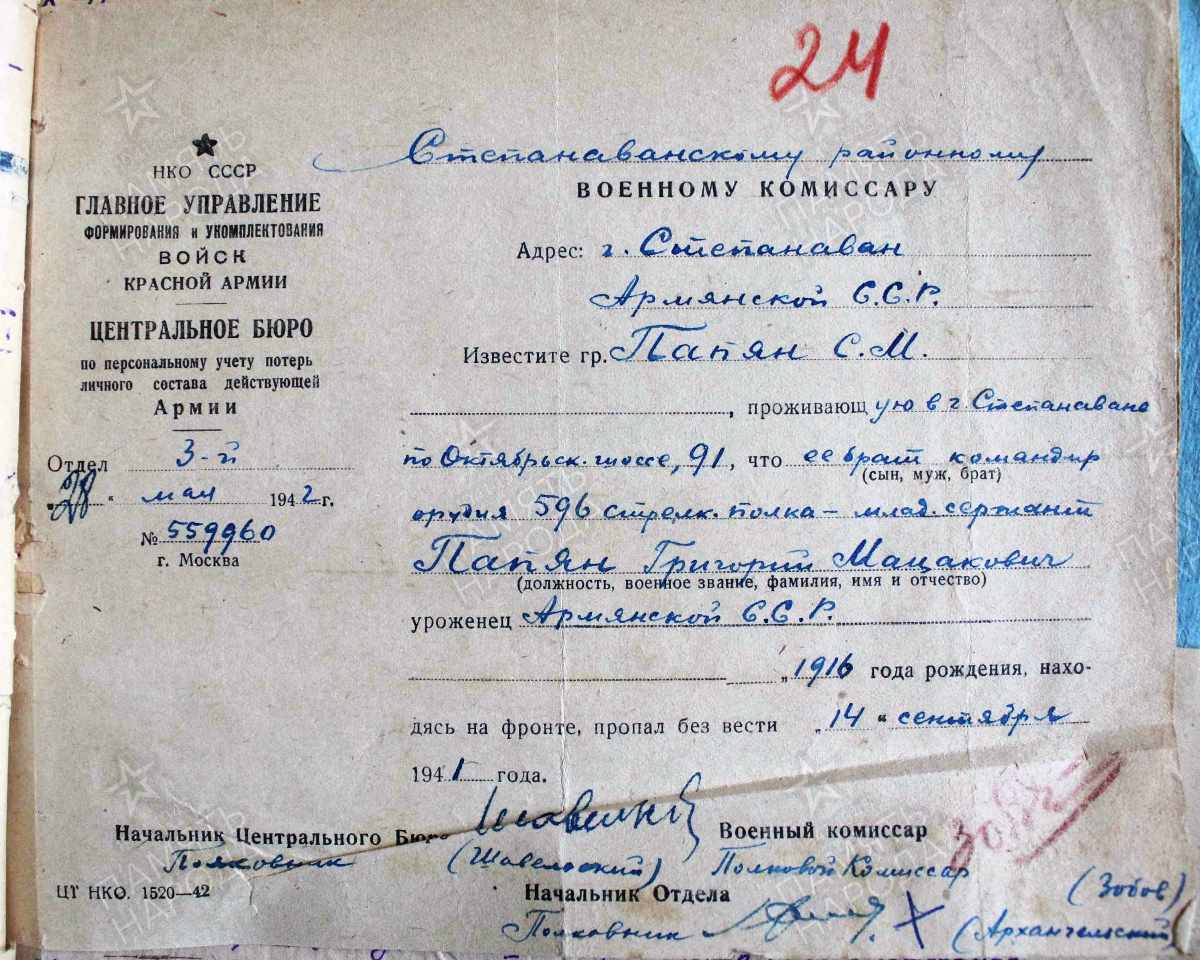 24
НКО СССР
ГЛАВНОЕ УПРАВЛЕНИЕ
ФОРМИРОВАНИЯ и УКОМПЛЕКТОВАНИЯ
ВОЙСК
КРАСНОЙ АРМИИ
ЦЕНТРАЛЬНОЕ БЮРО
по персональному учету потерь
личного состава действующей
Армии
Отдел 3-й
„28“ мая 1942 г.
№ 559960
г. Москва
Степанаванскому районному
ВОЕННОМУ КОМИССАРУ
Адрес: г. Степанаван
Армянской С.С.Р.
Известите гр. Папян С.М.
, проживающую в г. Степанаване
по Октябрьск. шоссе, 91, что ее брат командир
(сын, муж, брат)
орудия 596 стрелк. полка – млад. сержант
Папян Григорий Мацакович
(должность, военное звание, фамилия, имя и отчество)
уроженец Армянской С.С.Р.
„1916 года рождения, нахо-
дясь на фронте, пропал без вести „14“ сентября
1941 года.
Начальник Центрального Бюро
Полковник (Шавельский)
Военный комиссар
Полковой Комиссар
(Зобов)
Начальник Отдела
Полковник
(Архангельский)
ЦТ НКО. 1520—42
ПАМЯТЬ НАРОДА